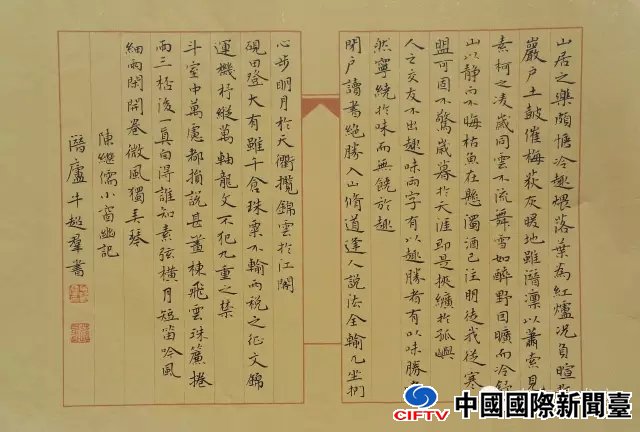 山居之樂頗愜冷趣煨落葉為紅爐況負暄於
巖户土鼓催梅荻灰暖地雖潛凛以蕭索見
素柯之凌歲同雲不流舞雪如醉野因曠而冷舒
山以静而不晦枯魚在懸濁酒已注朋徒我從寒
盟可固不驚歲暮於天涯即是挾纊於孤嶼
人之交友不出趣味兩字有以趣勝者有以味勝者
然寧繞於味而無饒於趣
閉户讀書絶勝入山修道逢人説法全輸兀坐捫
心步明月於天衢攬錦雲於江閣
硯田登大有雖千倉珠粟不輸兩税之征文錦
運機杼縱萬軸龍文不犯九重之禁
斗室中萬慮都捐説甚畫棟飛雲珠簾捲
雨三杯後一真自得誰知素弦橫月短笛吟風
細雨閑開卷微風獨弄琴
陳繼儒小窗幽記
潛廬牛超羣書
CIFTV
中國國際新聞臺